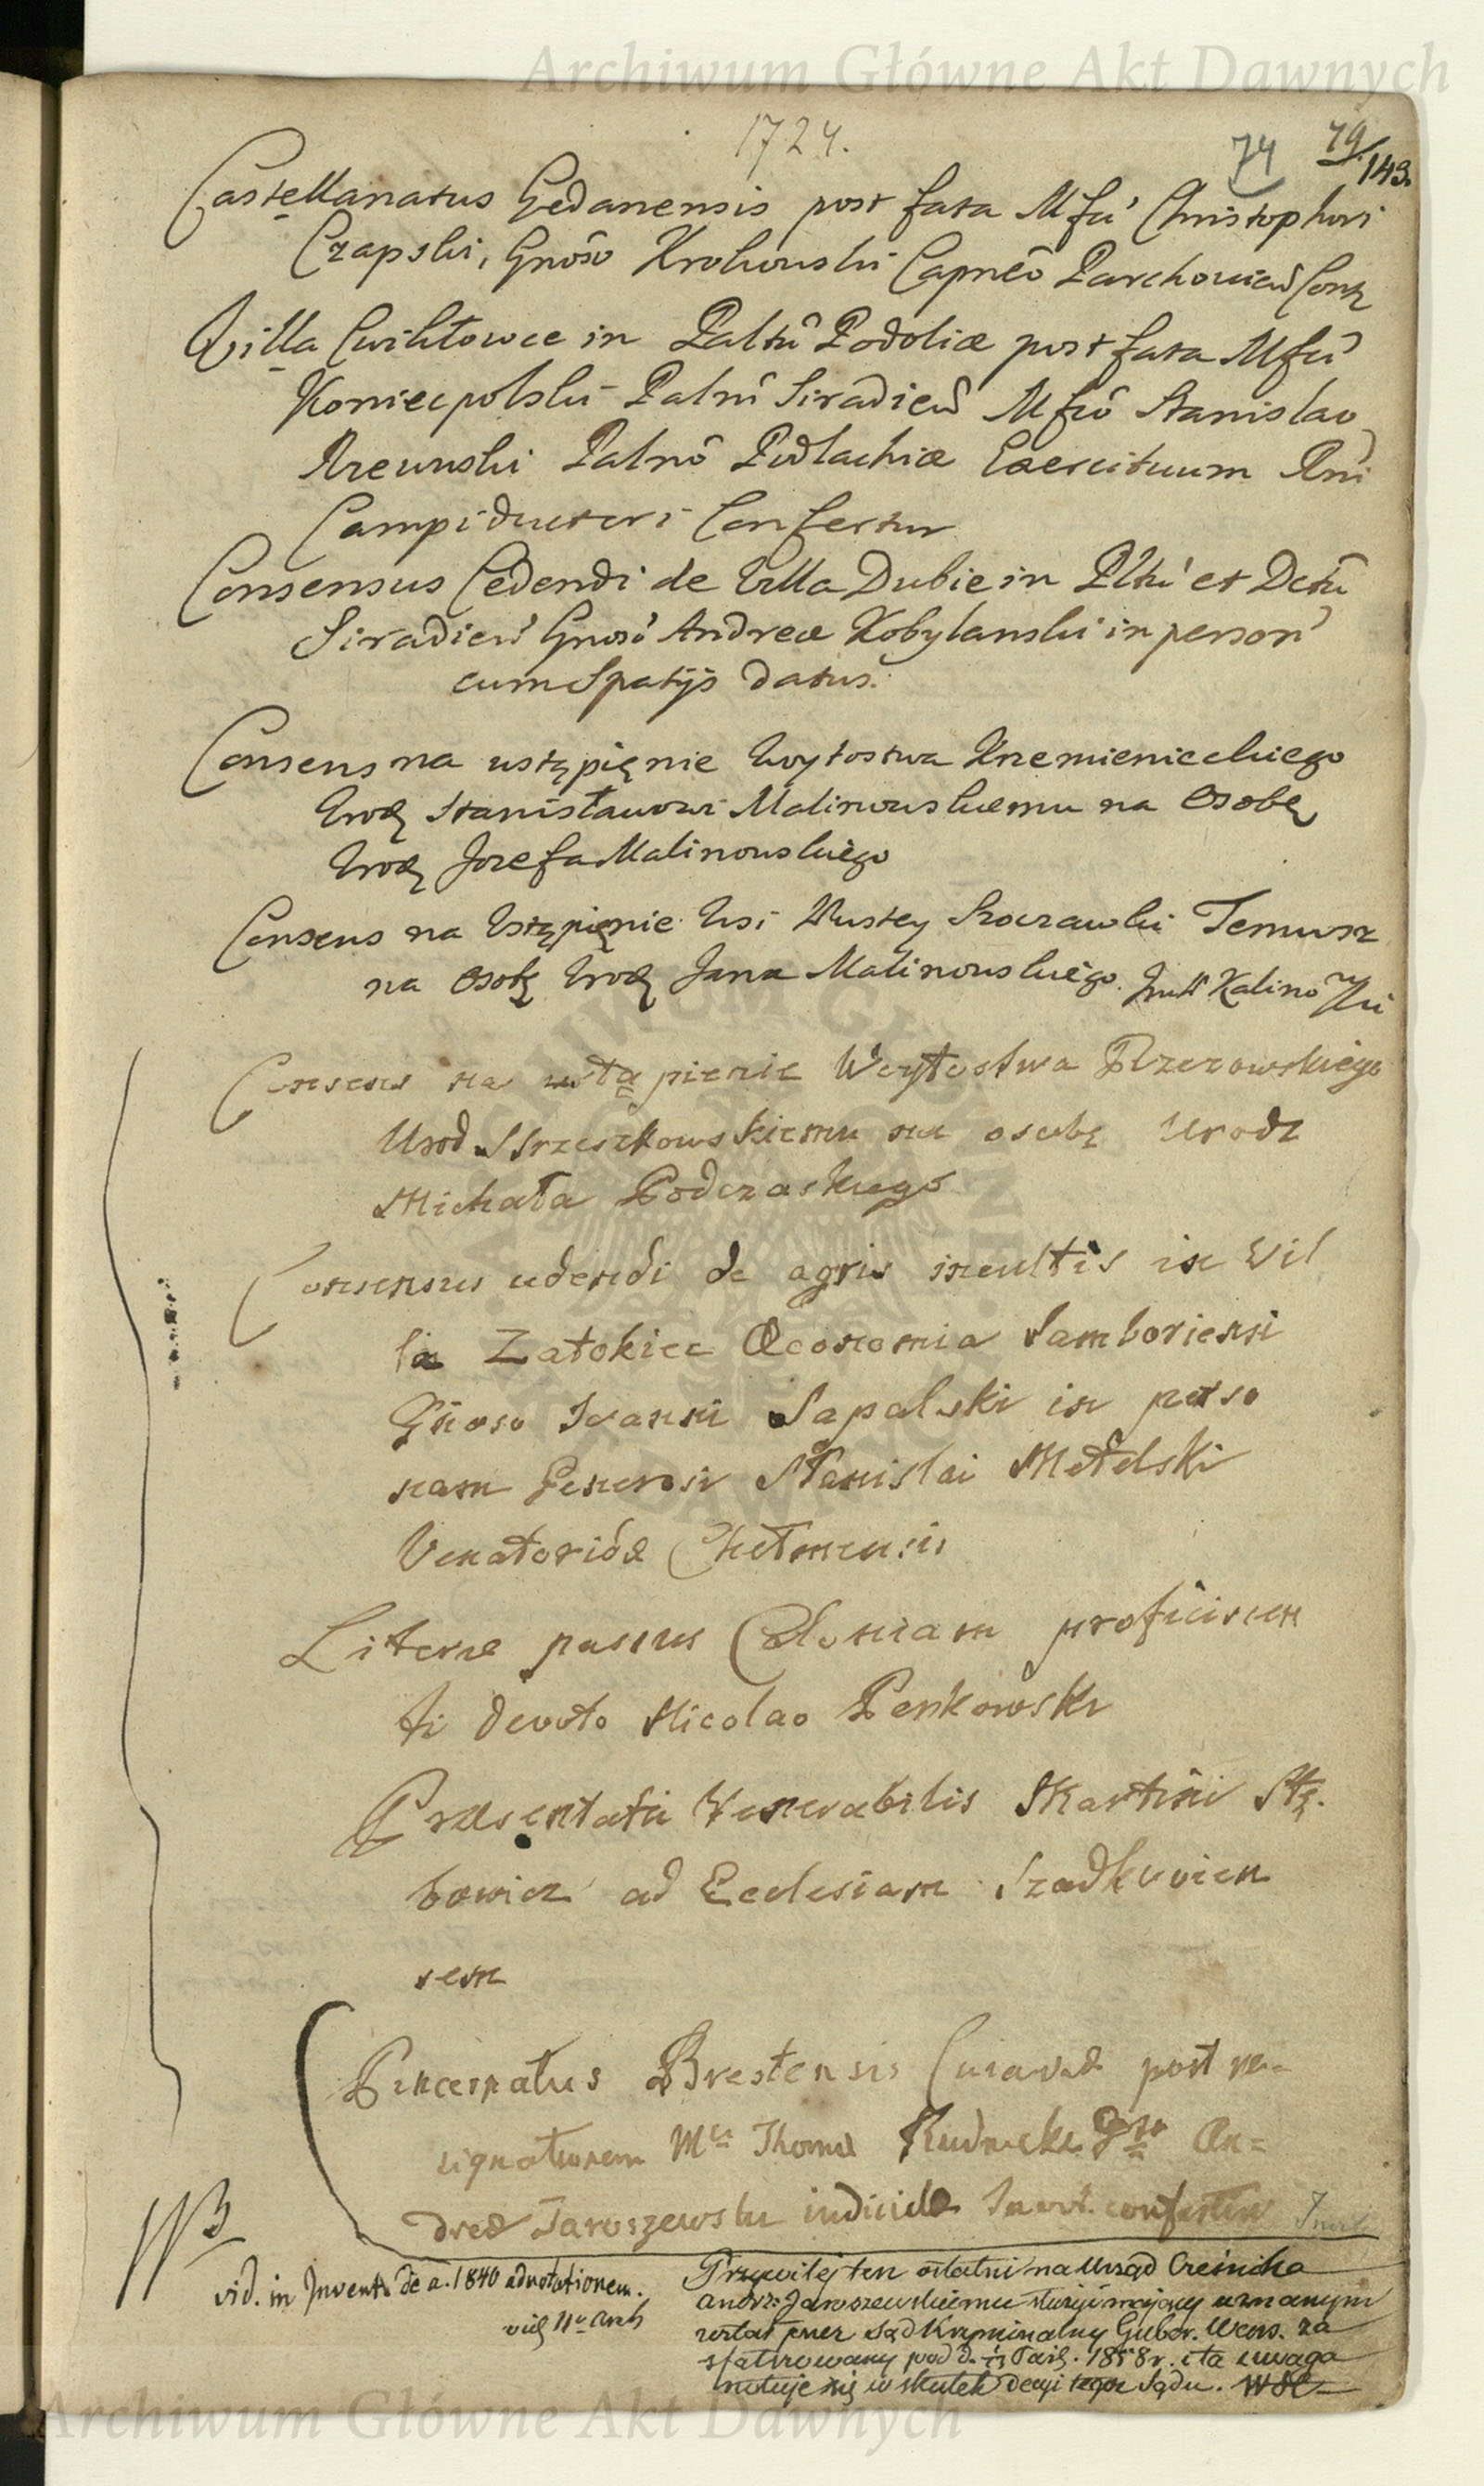 Archiwum Główne Akt Dawnych
1724.
74 79/143.
Castellanatus Gedanensis post fata Mfci Christophori
Czapski, Gnoso Krokowski Capneo Parchovien Conf
Villa Cwikłowce in Paltu Podoliæ post fata Mfci
Koniecpolski Palni Siradien Mfco Stanislao
Rzewuski Palno Podlachiæ Exercituum Rni
Campiductori Confertur
Consensus Cedendi de Villa Dubie in Pltu et Dctu
Siradien Gnoso Andreæ Kobylanski in person
cum Spatijs datus.
Consens na ustąpięnie Woytostwa Krzemienieckiego
Urodz Stanisławowi Malinowskiemu na Osobę
Urodz Jozefa Malinowskiego
Consens na Ustąpięnie Wsi Pustey
na Osobę Urodz Jana Malinowskiego
Consens na ustąpienie Woytostwa
Urod na osobę Urodz
Michała Podczaskiego
Consensus cedendi de agris incultis in Vil
la Zatokiec Oeconomia Samboriensi
Gnoso Ioanni Sapalski in perso
nam Generosi Stanislai Metelski
Venatoridæ Chełmensis
Literæ passus Coloniam proficiscen
ti devoto Nicolao Penkowski
Præsentatio Venerabilis Martini Stę.
bowicz ad Ecclesiam Szadkovien
sem
Pincernatus Brestensis Cuiaviæ post re=
signationem Mci Thomæ Rudnicki Gso An=
dreæ Jaroszewski iudicidæ confertur
NB
vid. in Invent. de a. 1840 adnotationem.
Przywilej ten ostatni na Urząd Cześnika
Andrz: Jaroszewskiemu służyć mający uznanym
został przez Sąd Kryminalny Guber. Wars. za
sfałszowany pod d. Paźd. 1858 r. i ta uwaga
notuje się w skutek decyzji tegoż Sądu.
Archiwum Główne Akt Dawnych